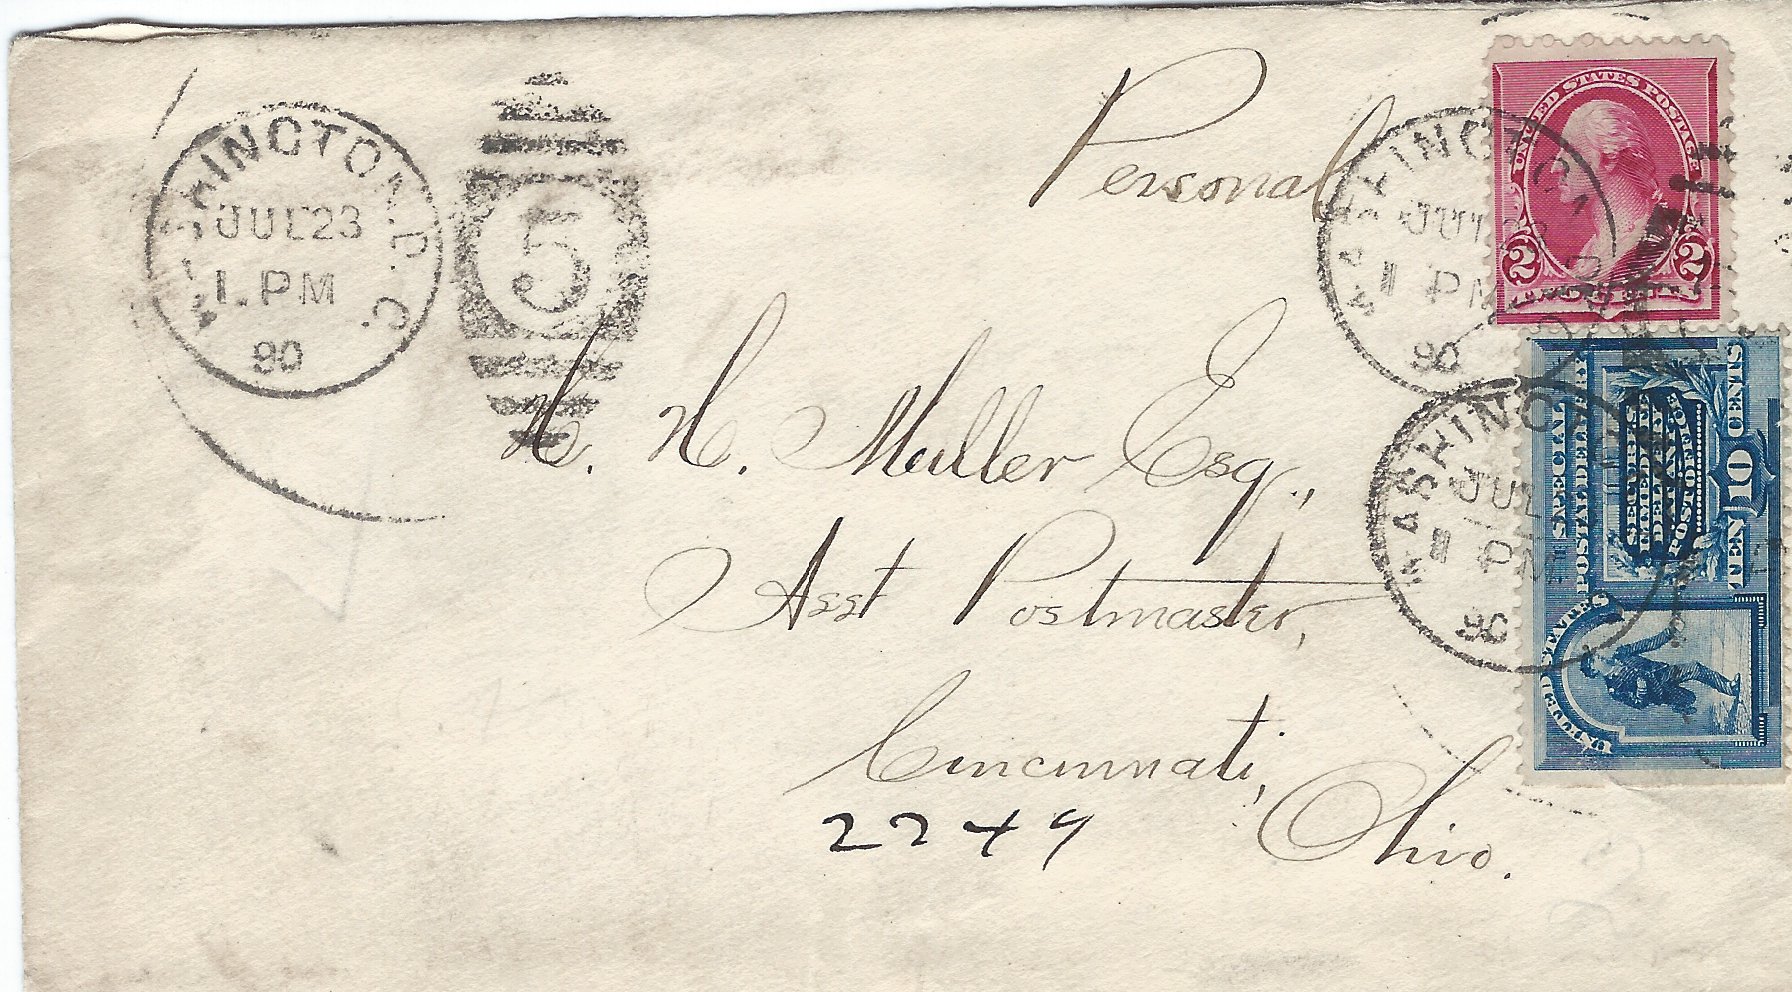 WASHINGTON, D.C.
JUL 23
1 PM
90
5
Personal
WASHINGTON
JUL 23
1 PM
90
UNITED STATES POSTAGE
2 2
H. H. Muller Esq.,
Asst Postmaster,
Cincinnati,
Ohio.
2249
WASHINGTON
JUL
1 PM
90
UNITED STATES
SPECIAL
POSTAL DELIVERY
SECURES IMMEDIATE
DELIVERY AT A
POST OFFICE
TEN 10 CENTS